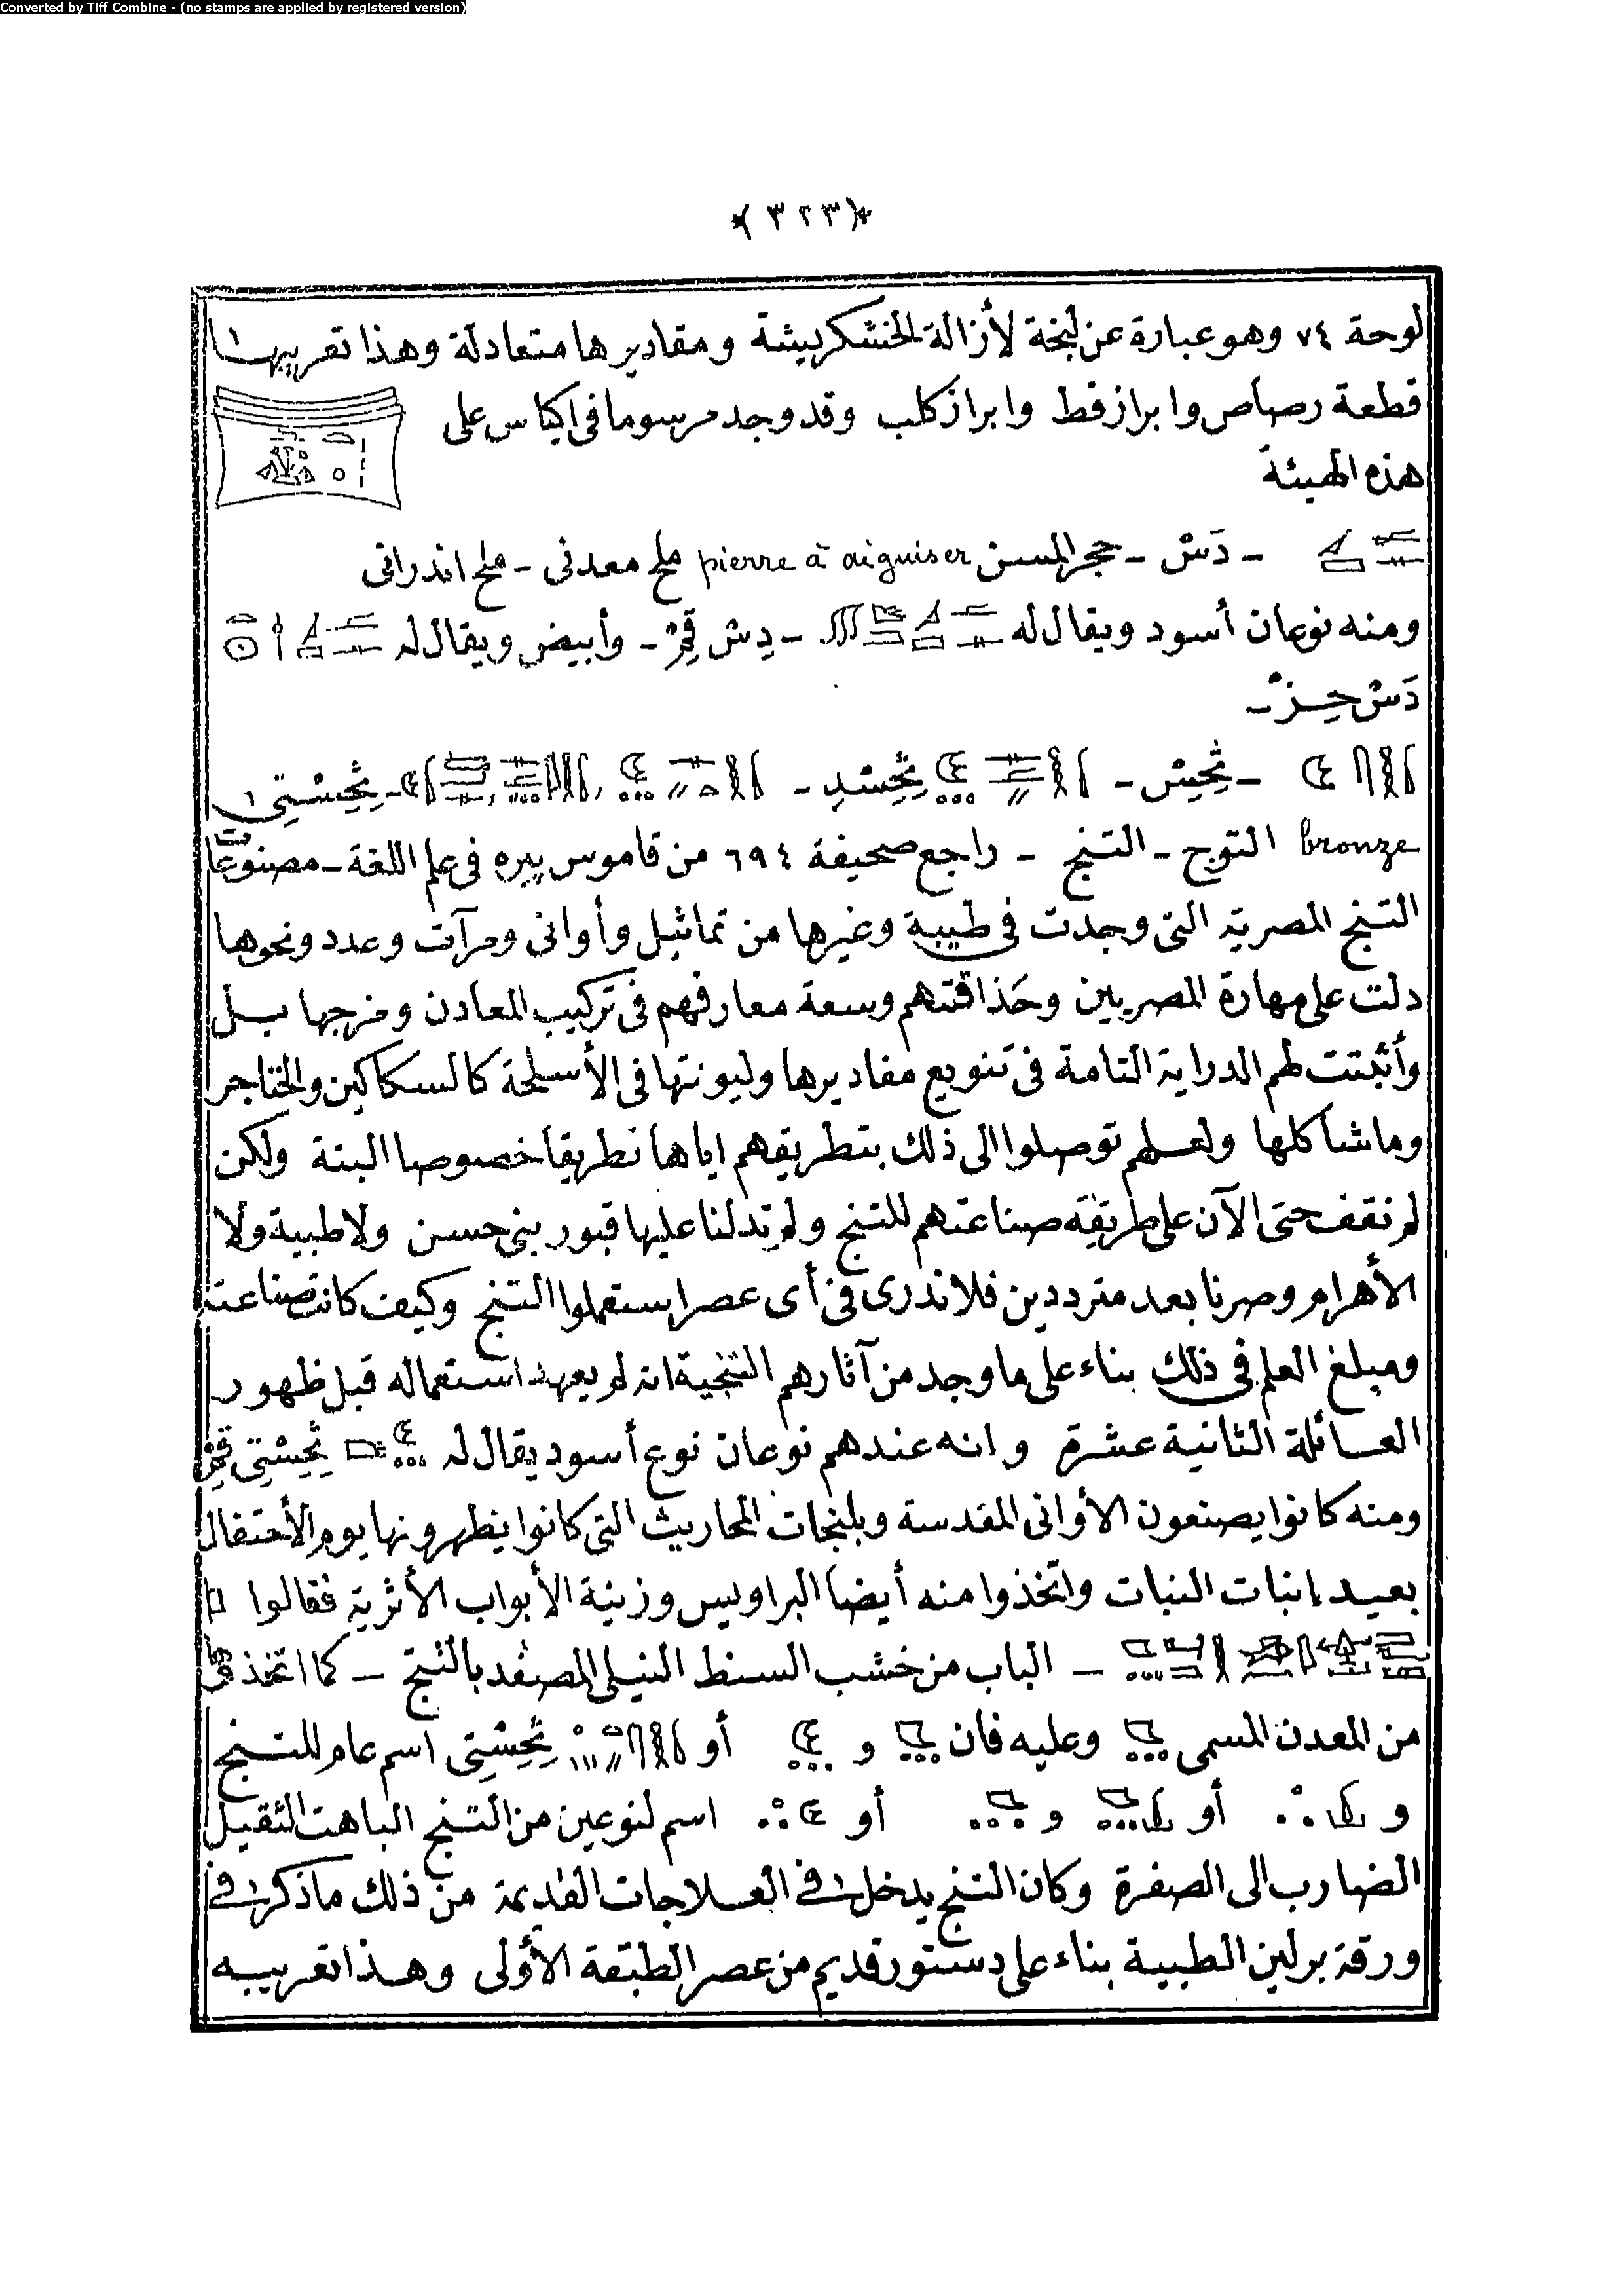 Converted by Tiff Combine - (no stamps are applied by registered version)
﴿٣٢٣﴾
لوحة ٧٤ وهو عبارة عن لبخة لأزالة الخشكريشة ومقاديرها متعادلة وهذا تعريبها
قطعة رصاص وابراز قط وابراز كلب وقد وجد مرسوما فى اكياس على
هذه الهيئة
- دَسْ - حجر المسن pierre à aiguiser ملح معدنى - ملح اندرانى
ومنه نوعان أسود ويقال له - دِسْ قِمْ - وأبيض ويقال له
دَسْ حِـز -
- تْحِسْ - تْحِسْدِ - - تْحِسْتِى
bronze التوج - التنج - راجع صحيفة ٦٩٤ من قاموس بيره فى علم اللغة - مصنوعات
التنج المصرية التى وجدت فى طيبة وغيرها من تماثيل وأوانى ومرآت وعدد ونحوها
دلت على مهارة المصريين وحَذاقتهم وسعة معارفهم فى تركيب المعادن ومزجها بـل
وأثبتت لهم الدراية التامة فى تنويع مقاديرها وليونتها فى الأسلحة كالسكاكين والخناجر
وما شاكلها ولعـلهم توصلوا الى ذلك بتطريقهم اياها تطريقا خصوصيا البتة ولكن
لم نقف حتى الآن على طريقة صناعتهم للتنج ولم تدلنا عليها قبور بنى حسن ولا طيبة ولا
الأهرام وصرنا بعد مترددين فلا ندرى فى أى عصر استعملوا التنج وكيف كانت صناعته
ومبلغ العلم فى ذلك بناء على ما وجد من آثارهم التنجية انه لم يعهد استعماله قبل ظهور
العـائلة الثانية عشرة وانه عندهم نوعان نوع أسود يقال له تْحِسْتِى قِمْ
ومنه كانوا يصنعون الأوانى المقدسة وبلنجات المحاريث التى كانوا يظهرونها يوم الأحتفال
بعيـد انبات النبات واتخذوا منه أيضا البراويس وزينة الأبواب الأثرية فقالوا
- الباب من خشب السنط النيلى المصفد بالتنج - كما اتخذوها
من المعدن المسمى وعليه فان و أو تْحِسْتِى اسم عام للتـنج
و أو و أو اسم لنوعين من التنج الباهت الثقيل
الضارب الى الصفرة وكان التنج يدخل فى العـلاجات القديمة من ذلك ما ذكر فى
ورقة برلين الطبية بناء على دستور قديم من عصر الطبقة الأولى وهـذا تعريبـه